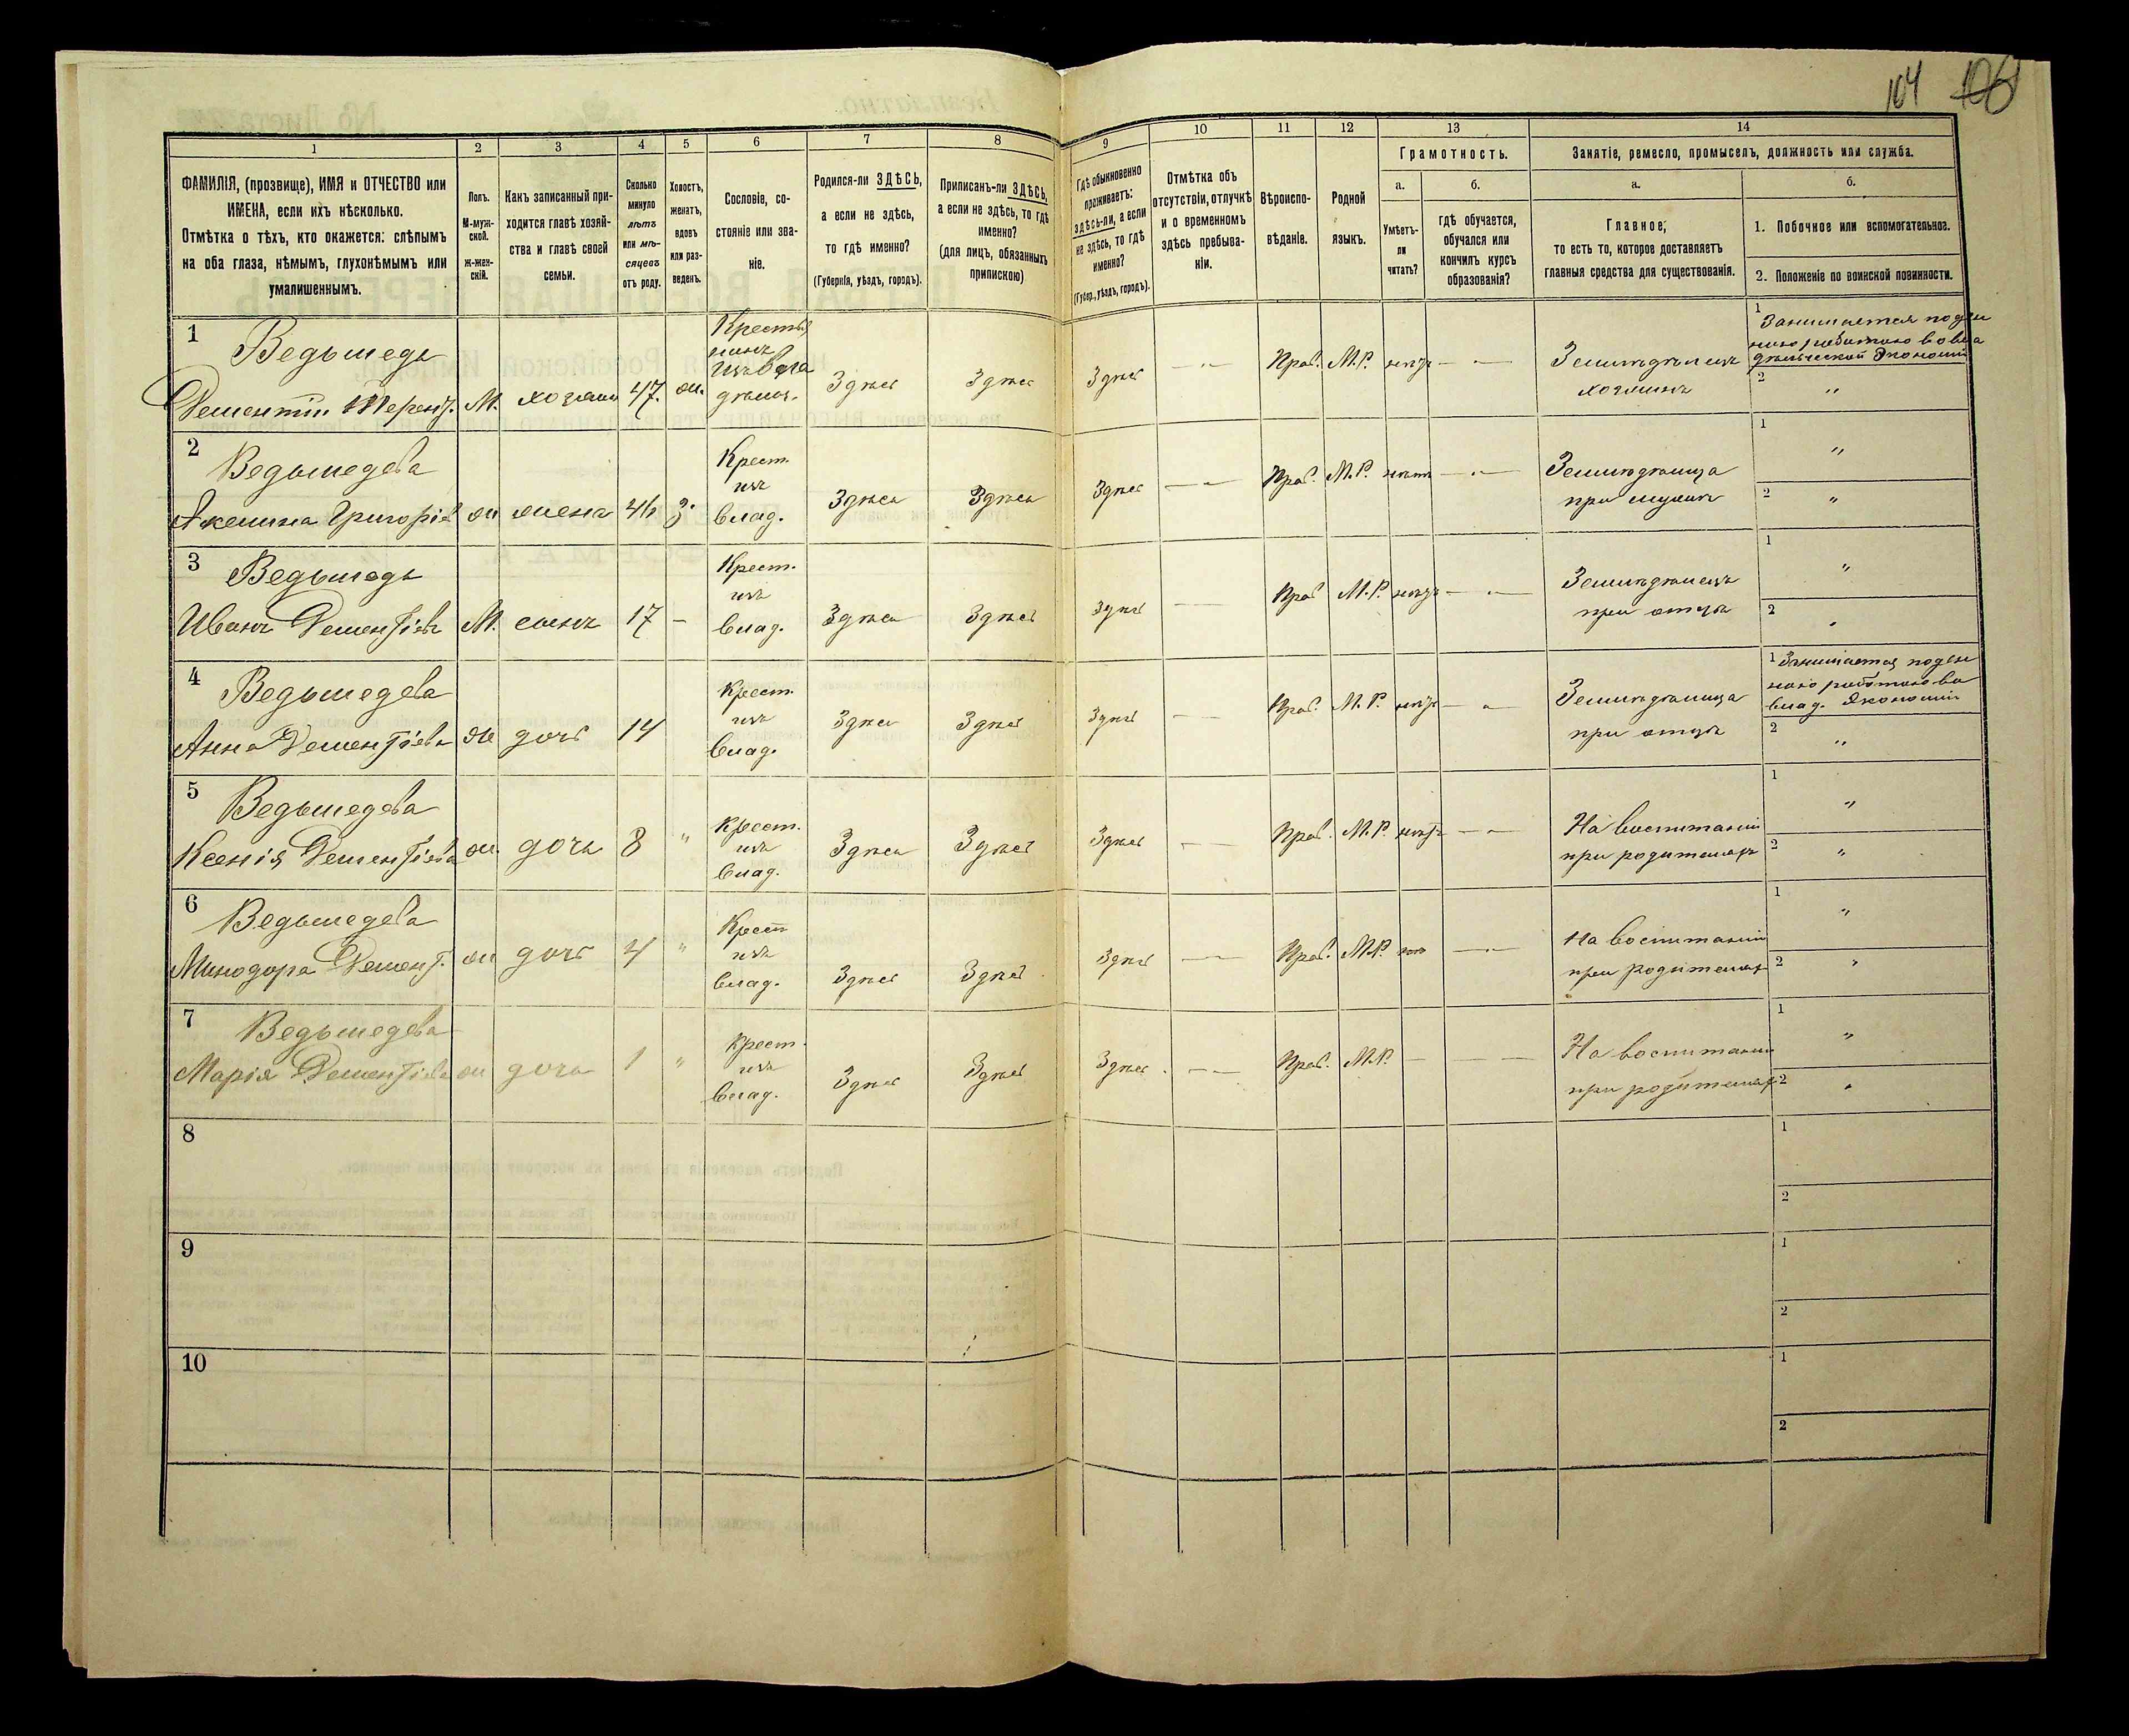 104 106
1 2 3 4 5 6 7 8 9 10 11 12 13 14
ФАМИЛІЯ, (прозвище), ИМЯ и ОТЧЕСТВО или
ИМЕНА, если ихъ нѣсколько.
Отмѣтка о тѣхъ, кто окажется: слѣпымъ
на оба глаза, нѣмымъ, глухонѣмымъ или
умалишеннымъ.
Полъ.
М-муж-
ской.
ж-жен-
скій.
Какъ записанный при-
ходится главѣ хозяй-
ства и главѣ своей
семьи.
Сколько
минуло
лѣтъ
или мѣ-
сяцевъ
отъ роду.
Холостъ,
женатъ,
вдовъ
или раз-
веденъ.
Сословіе, со-
стояніе или зва-
ніе.
Родился-ли ЗДѢСЬ,
а если не здѣсь,
то гдѣ именно?
(Губернія, уѣздъ, городъ).
Приписанъ-ли ЗДѢСЬ,
а если не здѣсь, то гдѣ
именно?
(для лицъ, обязанныхъ
припискою)
Гдѣ обыкновенно
проживаетъ:
здѣсь-ли, а если
не здѣсь, то гдѣ
именно?
(Губер., уѣздъ, городъ).
Отмѣтка объ
отсутствіи, отлучкѣ
и о временномъ
здѣсь пребыва-
ніи.
Вѣроиспо-
вѣданіе.
Родной
языкъ.
Грамотность.
а.
Умѣетъ-
ли
читать?
б.
гдѣ обучается,
обучался или
кончилъ курсъ
образованія?
Занятіе, ремесло, промыселъ, должность или служба.
а.
Главное,
то есть то, которое доставляетъ
главныя средства для существованія.
б.
1. Побочное или вспомогательное.
2. Положеніе по воинской повинности.
1
Ведьмедь
Дементій Терент. М. хозяин 47. ж.
Крестья
нинъ
изъ вла
дѣльч.
Здѣсь Здѣсь Здѣсь — „ — Прав. М.Р. нѣтъ — „ —
Земледѣлецъ
хозяинъ
1 Занимается поден
ною работою во вла
дѣльческой Экономіи
2 „
2
Ведьмедева
Аксинія Григоріев ж жена 46 З.
Крест.
изъ
влад.
Здѣсь Здѣсь Здѣсь — „ — Прав. М.Р. нѣтъ — „ —
Земледѣлица
при мужѣ
1 „
2 „
3
Ведьмедь
Иванъ Дементіевъ М. сынъ 17 —
Крест.
изъ
влад.
Здѣсь Здѣсь Здѣсь — — Прав М.Р. нѣтъ — „ —
Земледѣлецъ
при отцѣ
1 „
2 „
4
Ведьмедева
Анна Дементіева ж дочь 14
Крест.
изъ
влад.
Здѣсь Здѣсь Здѣсь — — Прав. М.Р. нѣтъ — „ —
Земледѣлица
при отцѣ
1 Занимается поден
ною работою во
влад. Экономіи
2 „
5
Ведьмедева
Ксенія Дементіева ж. дочь 8 „
Крест.
изъ
влад.
Здѣсь Здѣсь Здѣсь — — Прав. М.Р. нѣтъ — „ —
На воспитаніи
при родителяхъ
1 „
2 „
6
Ведьмедева
Минодора Демент. ж дочь 4 „
Крест
изъ
влад.
Здѣсь Здѣсь Здѣсь — „ — Прав. М.Р. — „ —
На воспитаніи
при родителях
1 „
2 „
7
Ведьмедева
Марія Дементіева ж дочь 1 „
Крест.
изъ
влад.
Здѣсь Здѣсь Здѣсь. — — Прав. М.Р. — — —
На воспитаніи
при родителях
1 „
2 „
8
1
2
9
1
2
10
1
2